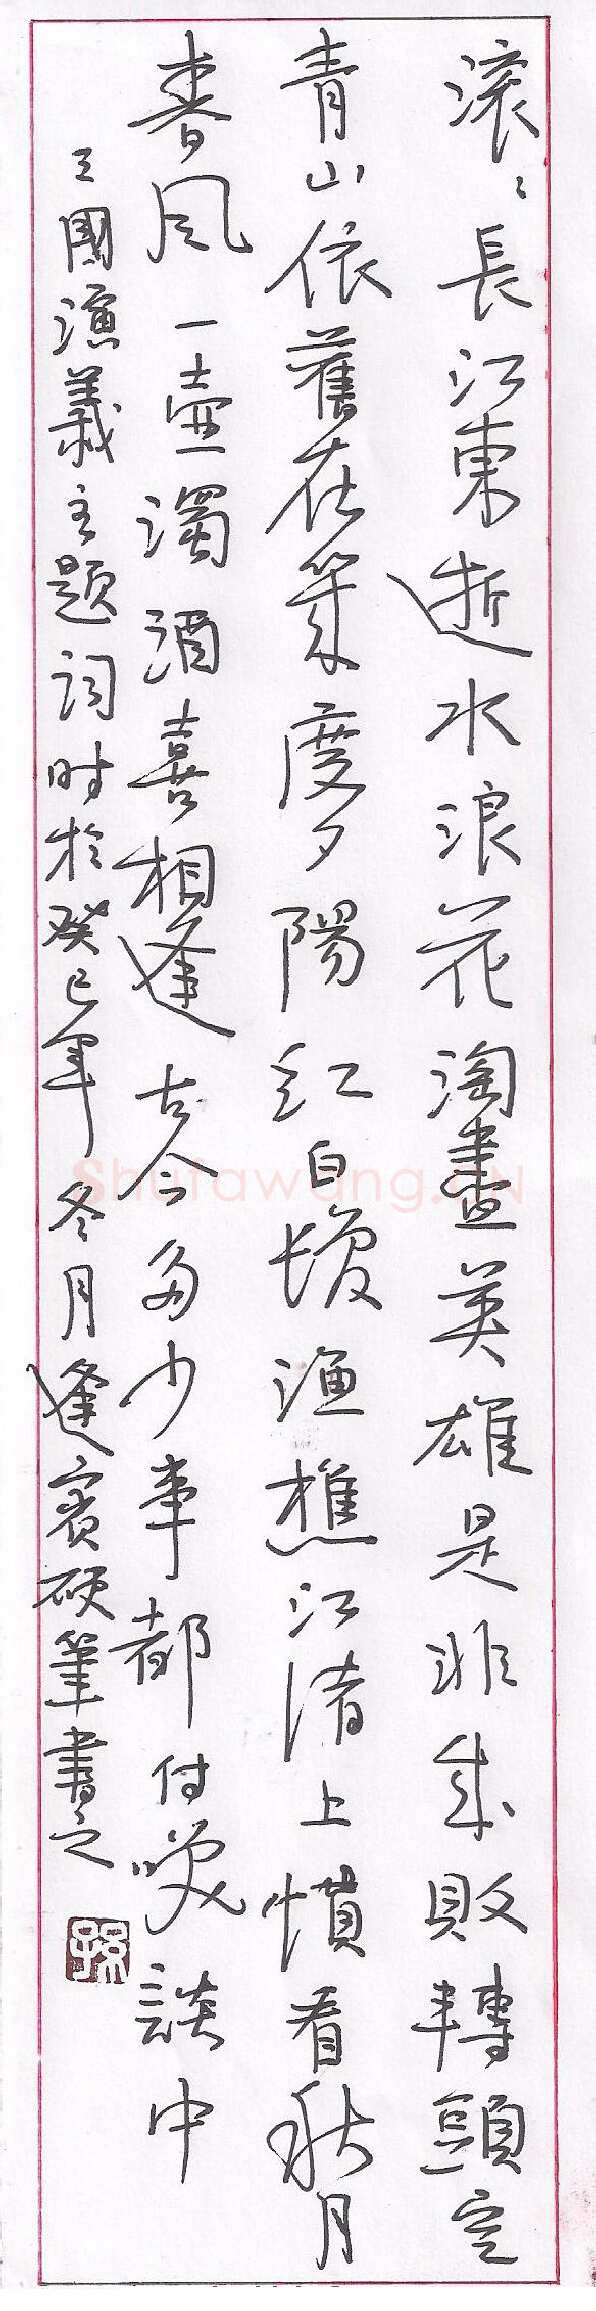 滚〻長江東逝水浪花淘盡英雄是非成敗轉頭空
青山依舊在幾度夕陽紅白髮渔樵江渚上慣看秋月
春风一壶濁酒喜相逢古今多少事都付笑談中
三國演義主题词时於癸巳年冬月逢宾硬筆書之
孫
Shufawang.CN